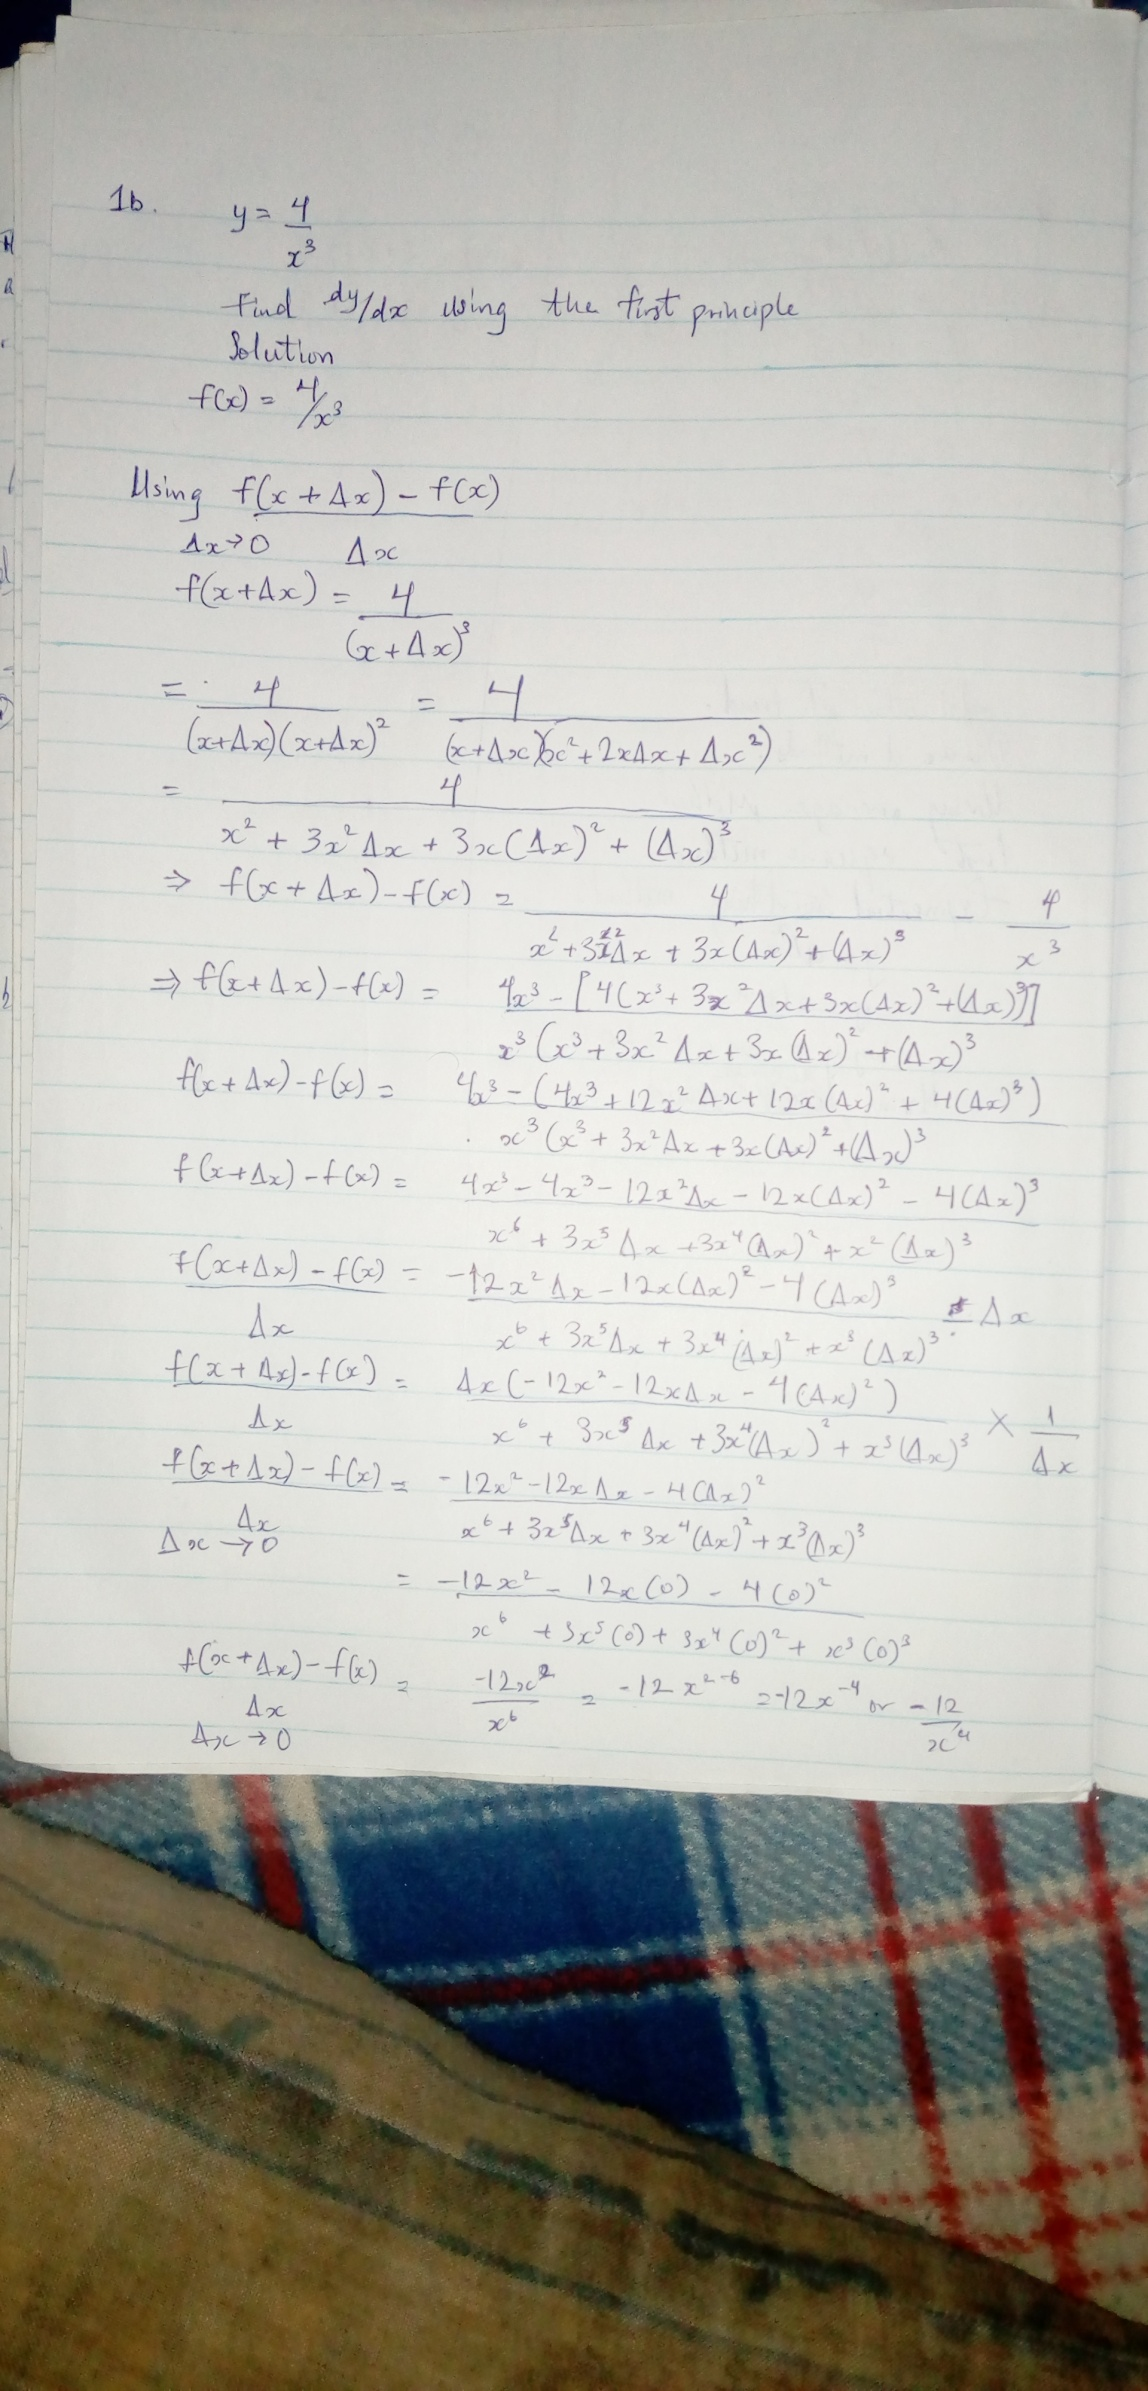 1b. y = 4/x³
Find dy/dx using the first principle
Solution
f(x) = 4/x³
Using f(x + Δx) - f(x)
Δx→0 Δx
f(x+Δx) = 4/(x+Δx)³
= 4/(x+Δx)(x+Δx)² = 4/(x+Δx)(x²+2xΔx+Δx²)
= 4/x² + 3x²Δx + 3x(Δx)² + (Δx)³
⇒ f(x + Δx) - f(x) = 4/x² + 3x²Δx + 3x(Δx)² + (Δx)³ - 4/x³
⇒ f(x + Δx) - f(x) = 4x³ - [4(x³ + 3x²Δx + 3x(Δx)² + (Δx)³)]/x³(x³ + 3x²Δx + 3x(Δx)² + (Δx)³
f(x + Δx) - f(x) = 4x³ - (4x³ + 12x²Δx + 12x(Δx)² + 4(Δx)³)/x³(x³ + 3x²Δx + 3x(Δx)² + (Δx)³
f(x+Δx) - f(x) = 4x³ - 4x³ - 12x²Δx - 12x(Δx)² - 4(Δx)³/x⁶ + 3x⁵Δx + 3x⁴(Δx)² + x²(Δx)³
f(x+Δx) - f(x)/Δx = -12x²Δx - 12x(Δx)² - 4(Δx)³/x⁶ + 3x⁵Δx + 3x⁴(Δx)² + x³(Δx)³ ÷ Δx
f(x + Δx) - f(x)/Δx = Δx(-12x² - 12xΔx - 4(Δx)²)/x⁶ + 3x⁵Δx + 3x⁴(Δx)² + x³(Δx)³ × 1/Δx
f(x + Δx) - f(x)/Δx = -12x² - 12xΔx - 4(Δx)²/x⁶ + 3x⁵Δx + 3x⁴(Δx)² + x³(Δx)³
Δx → 0
= -12x² - 12x(0) - 4(0)²/x⁶ + 3x⁵(0) + 3x⁴(0)² + x³(0)³
f(x + Δx) - f(x)/Δx = -12x²/x⁶ = -12x²⁻⁶ = -12x⁻⁴ or -12/x⁴
Δx → 0